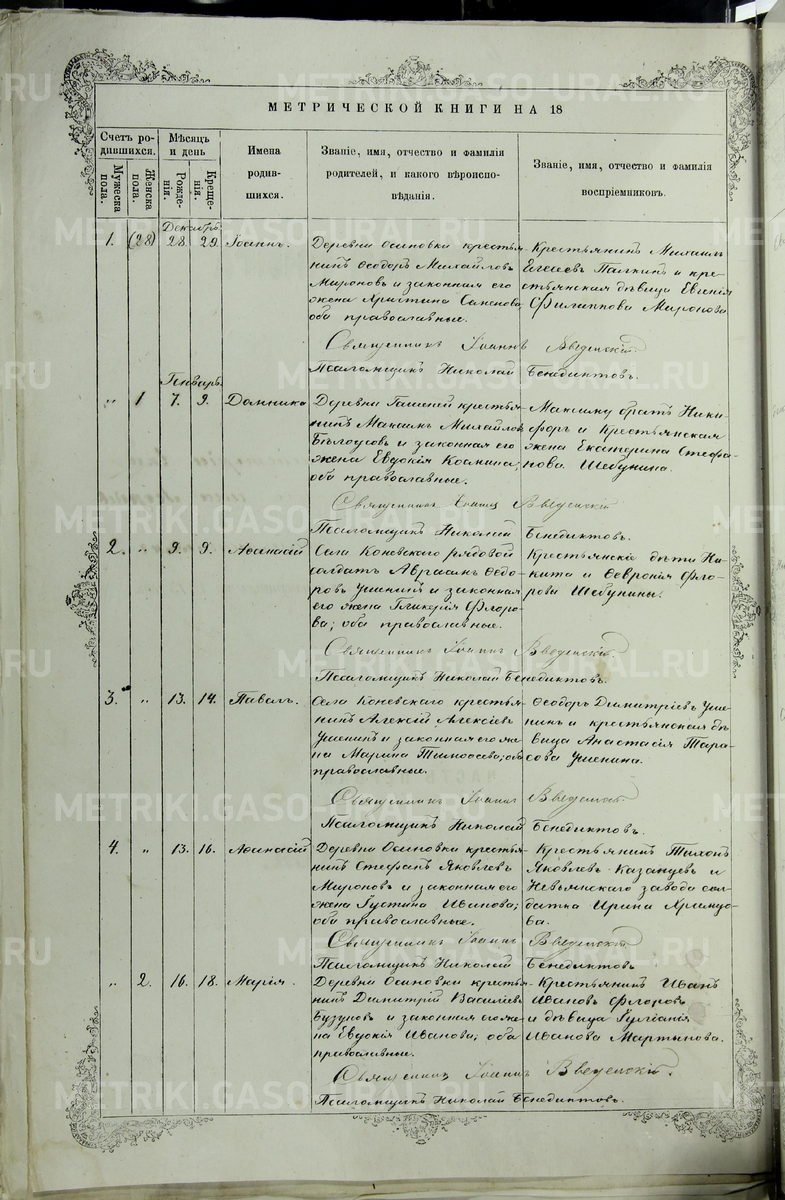 МЕТРИЧЕСКОЙ КНИГИ НА 18
Счетъ ро-
дившихся.
Мужеска
пола.
Женска
пола.
Мѣсяцъ
и день
Рожде-
нія.
Креще-
нія.
Имена
родив-
шихся.
Званіе, имя, отчество и фамилія
родителей, и какого вѣроиспо-
вѣданія.
Званіе, имя, отчество и фамилія
воспріемниковъ.
Декабрь
1. (28) 28. 29. Іоаннъ.
Деревни Осиновки крестья-
нинъ Ѳеодоръ Михайловъ
Мироновъ и законная его
жена Христина
оба православные.
Крестьянинъ Михаилъ
Палкинъ и кре-
стьянская дѣвица Евгенія
Филиппова Миронова
Священникъ Іоаннъ Введенскій.
Псаломщикъ Николай Бенедиктовъ.
Генварь
" 1 7. 9. Домника
Деревни крестья-
нинъ Максимъ Михайловъ
Бѣлоусовъ и законная его
жена Евдокія Космина,
оба православные.
Максиму братъ Ники-
форъ и Крестьянская
жена Екатерина Стефа-
нова Шебунина.
Священникъ Іоаннъ Введенскій
Псаломщикъ Николай Бенедиктовъ.
2. " 9. 9. Аѳанасій
Села Коневскаго рядовой
солдатъ Авраамъ Ѳедо-
ровъ Ушенинъ и законная
его жена Гликерія Флоро-
ва; оба православные.
Крестьянскіе дѣти Ни-
кита и Ѳевронія Фло-
рова Шебунины.
Священникъ Іоаннъ Введенскій.
Псаломщикъ Николай Бенедиктовъ.
3. " 13. 14. Павелъ.
Села Коневскаго крестья-
нинъ Алексій Алексіевъ
Ушенинъ и законная его же-
на Марина Тимоѳеева; оба
православные.
Ѳеодоръ Димитріевъ Уше-
нинъ и крестьянская дѣ-
вица Анастасія Тара-
сова Ушенина.
Священникъ Іоаннъ Введенскій
Псаломщикъ Николай Бенедиктовъ.
4. " 13. 16. Аѳанасій
Деревни Осиновки крестья-
нинъ Стефанъ Яковлевъ
Мироновъ и законная его
жена Іустина Иванова;
оба православные.
Крестьянинъ Тихонъ
Яковлевъ Казанцевъ и
Невьянскаго завода сол-
датка Ирина
ва.
Священникъ Іоаннъ Введенскій
Псаломщикъ Николай Бенедиктовъ
" 2. 16. 18. Марія.
Деревни Осиновки крестья-
нинъ Димитрій Василіевъ
и законная его же-
на Евдокія Иванова; оба
православные.
Крестьянинъ Иванъ
Ивановъ Флоровъ
и дѣвица Іуліанія
Иванова Мартынова.
Священникъ Іоаннъ Введенскій.
Псаломщикъ Николай Бенедиктовъ.
METRIKI.GASO-URAL.RU